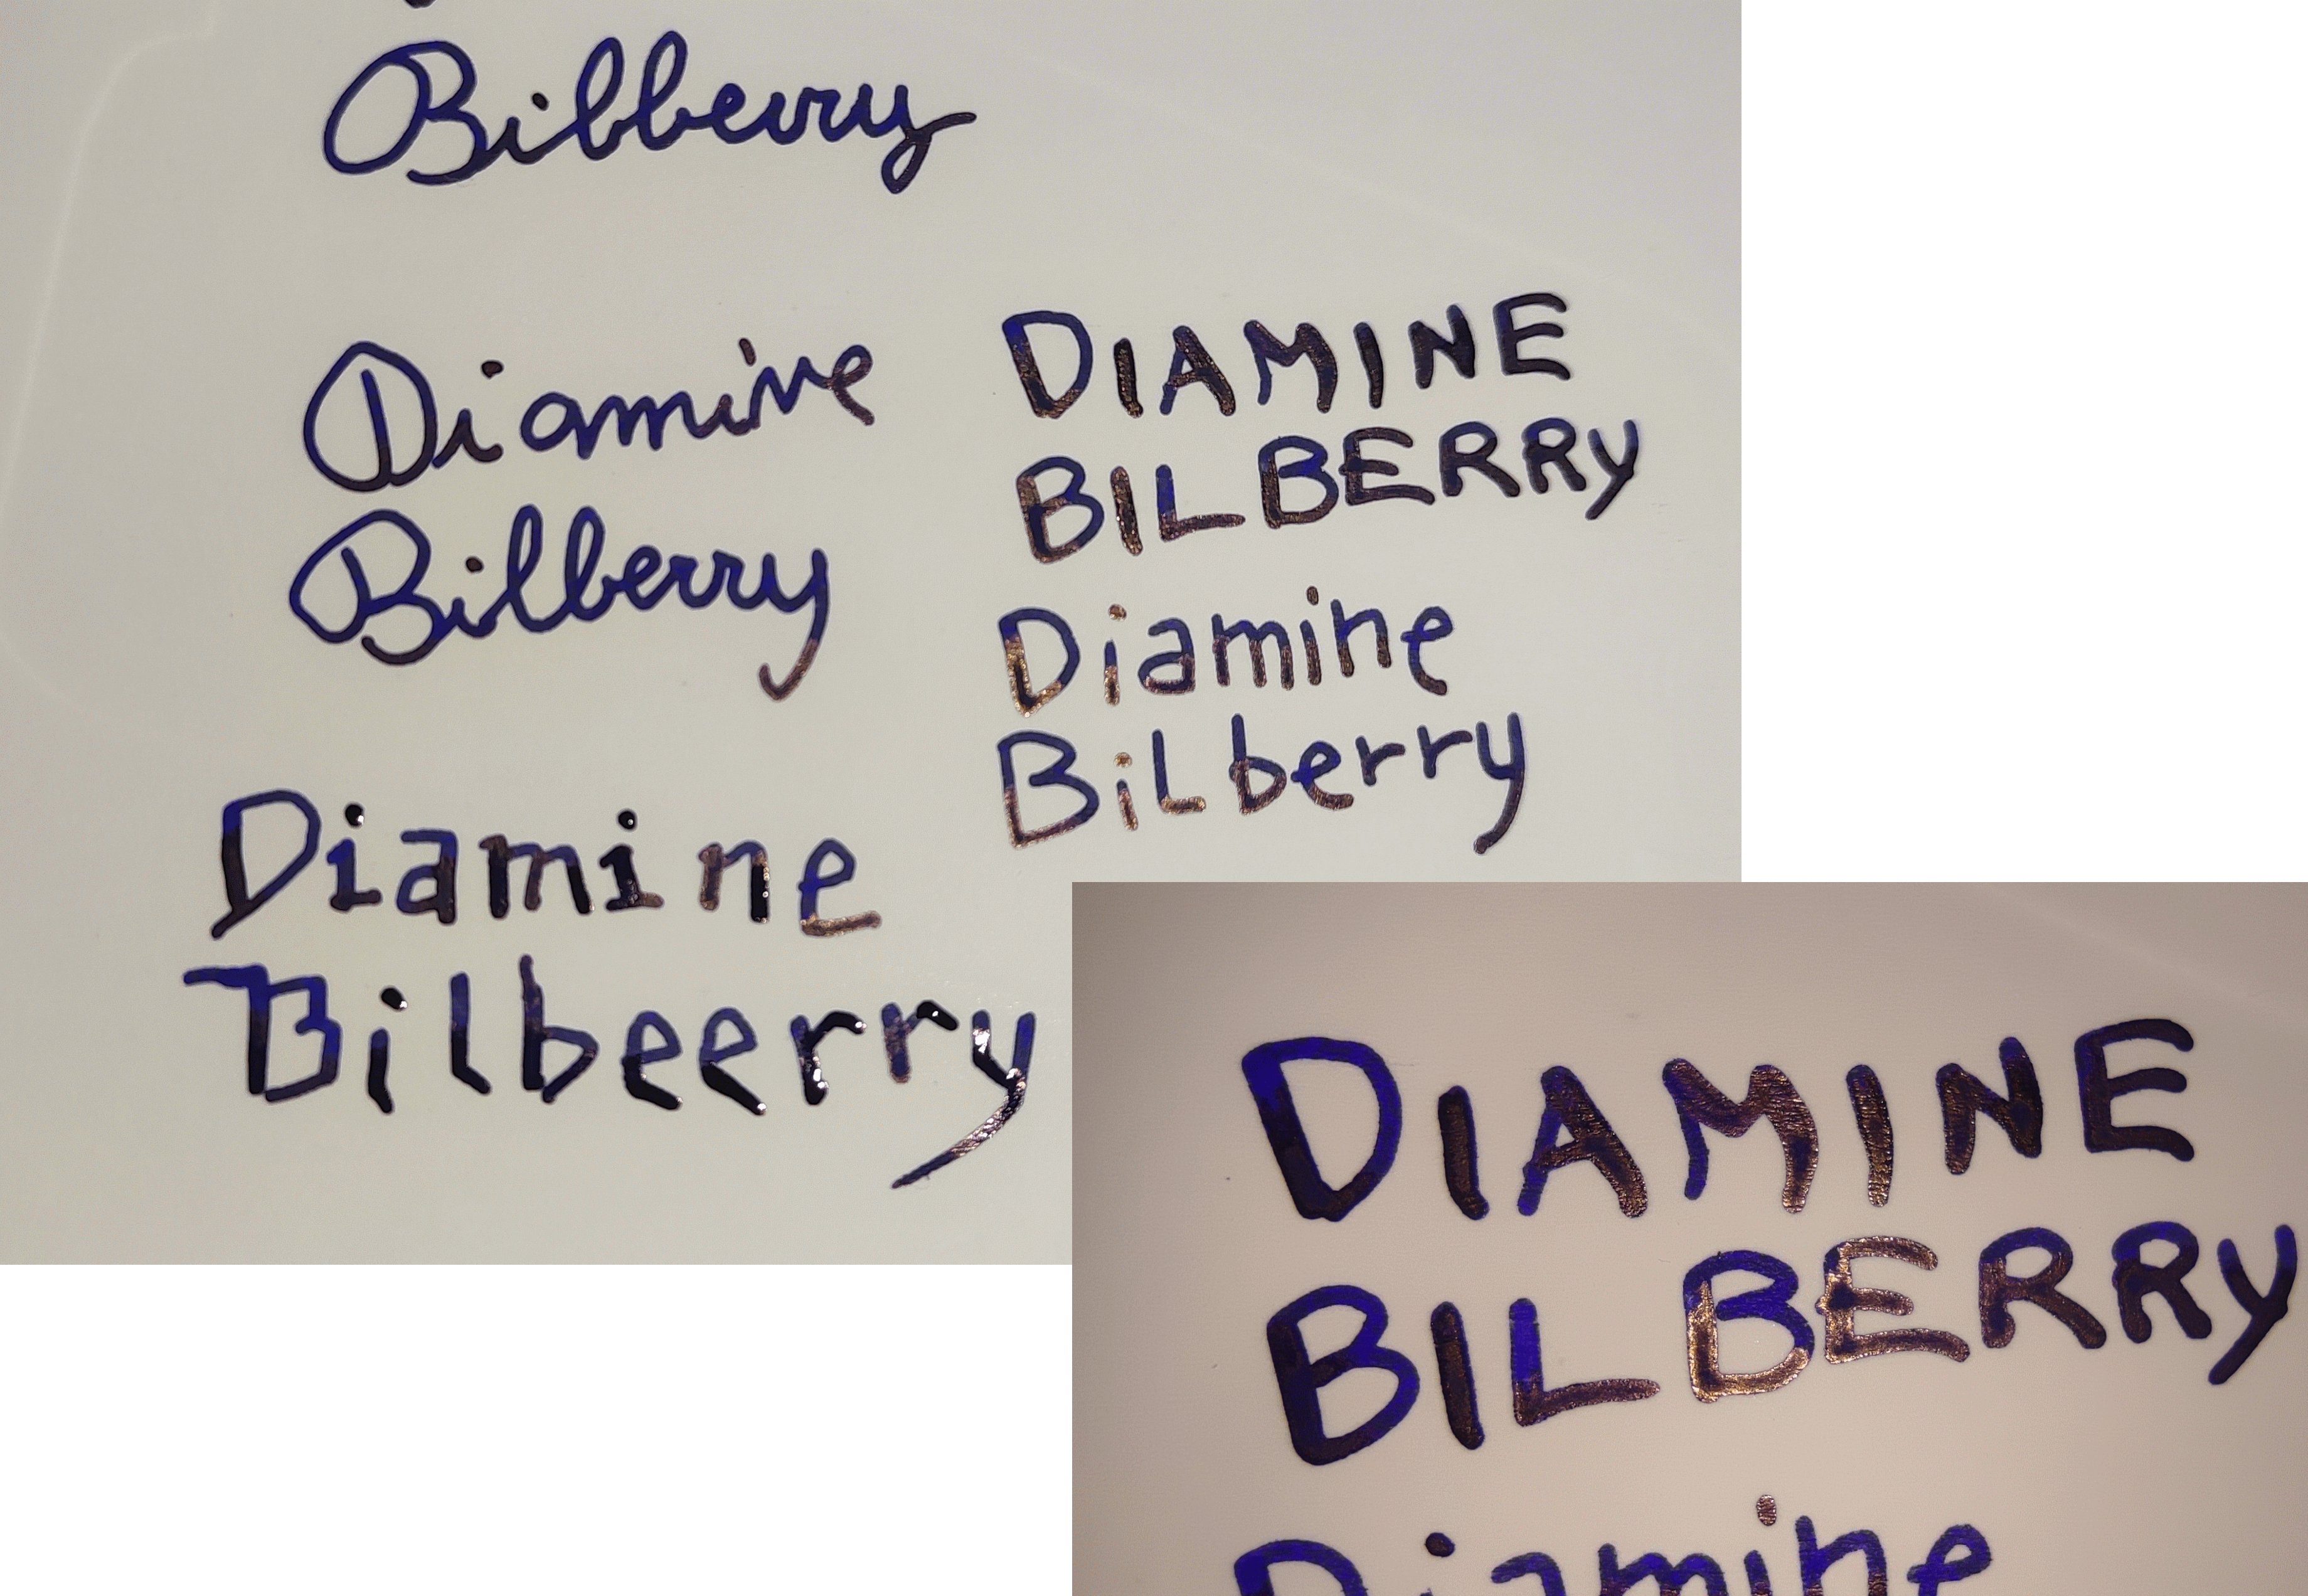 Bilberry
Diamine
Bilberry
DIAMINE
BILBERRY
Diamine
BiLberry
Diamine
Bilbeerry
DIAMINE
BILBERRY
Diamine